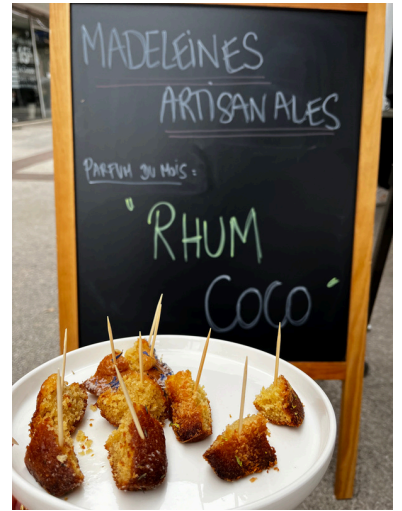 MADELEINES
ARTISANALES
PARFUM DU MOIS :
" RHUM
COCO "